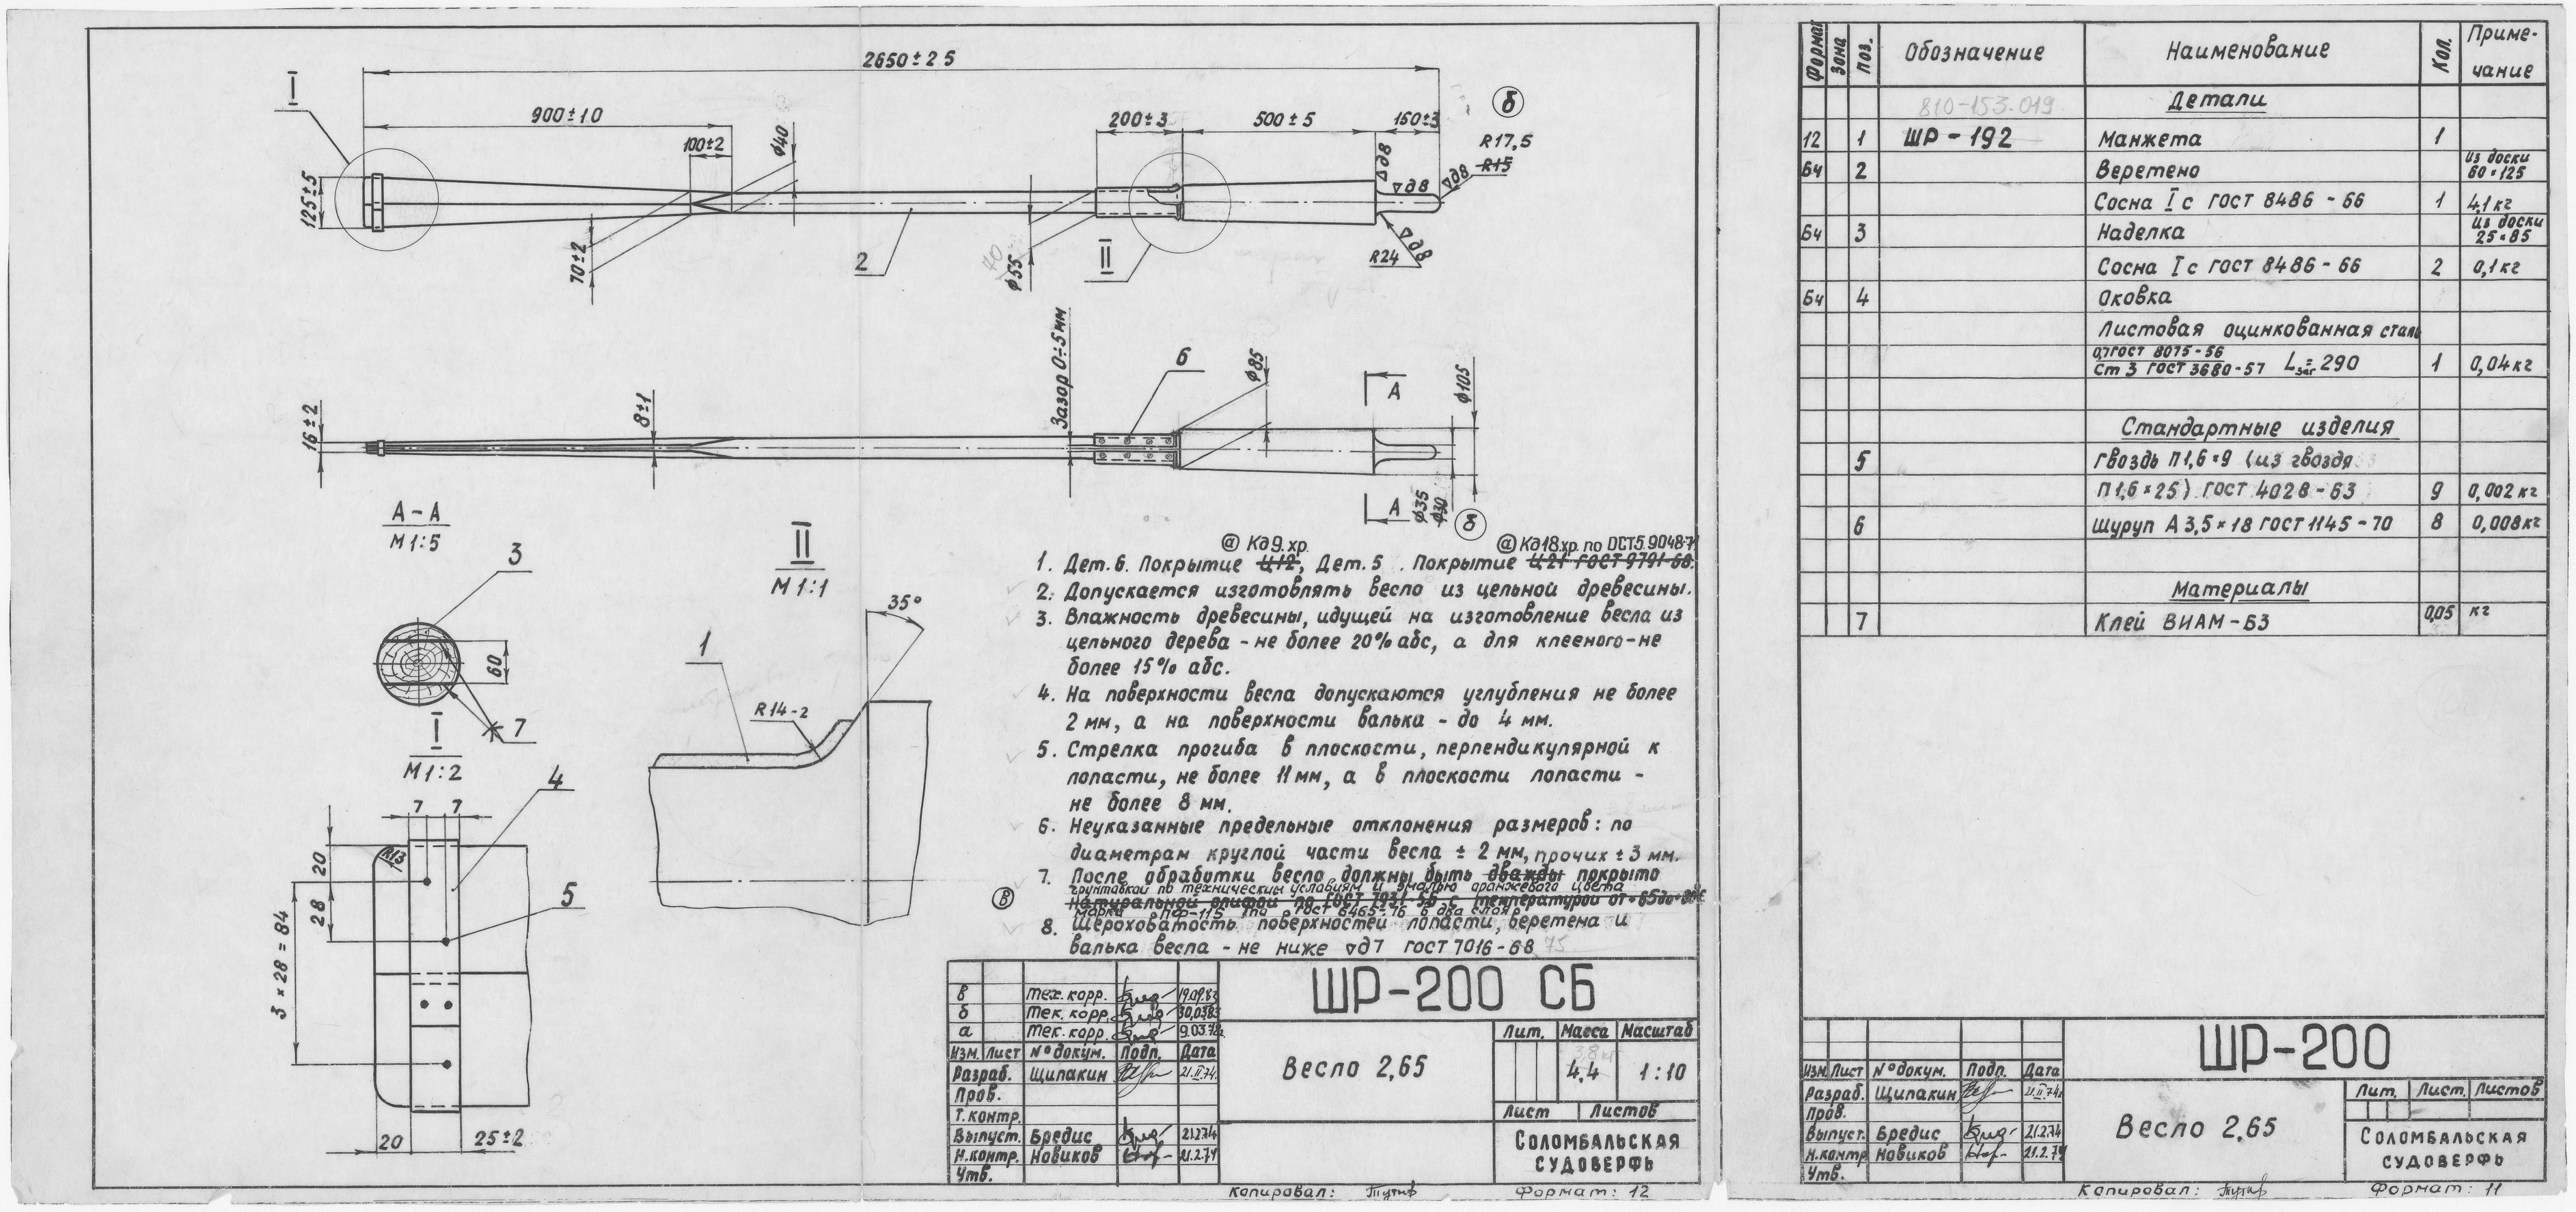 2650±25
I
900±10
100±2
⌀40
200±3
500±5
150±3
б
R17,5
R15
∇д8
∇д8
∇д8
125±5
70±2
2
70
⌀55
II
R24
∇д8
Зазор 0÷5мм
6
⌀85
А
⌀105
16±2
8±1
А
⌀35
⌀30
б
А-А
М1:5
3
60
7
II
М1:1
35°
1
R14-2
I
М1:2
4
7 7
R13
20
28
5
3×28=84
20
25±2
а Кд9.хр.
а Кд18.хр. по ОСТ5.9048-71
1. Дет.6. Покрытие Ц12, Дет.5. Покрытие Ц21 ГОСТ 9791-68.
2. Допускается изготовлять весло из цельной древесины.
3. Влажность древесины, идущей на изготовление весла из
цельного дерева - не более 20% абс, а для клееного - не
более 15% абс.
4. На поверхности весла допускаются углубления не более
2 мм, а на поверхности валька - до 4 мм.
5. Стрелка прогиба в плоскости, перпендикулярной к
лопасти, не более 11мм, а в плоскости лопасти -
не более 8 мм.
6. Неуказанные предельные отклонения размеров: по
диаметрам круглой части весла ± 2 мм, прочих ± 3 мм.
7. После обработки весло должны быть дважды покрыто
грунтовкой по техническим условиям и эмалью оранжевого цвета
в
Натуральной олифой по ГОСТ 7931-56 с температурой от
марки ПФ-115 по ГОСТ 6465-76 в два слоя
8. Шероховатость поверхностей лопасти, веретена и
валька весла - не ниже ∇д7 ГОСТ 7016-68 75
в Тех. корр. 19.09.83
б Тек. корр. 30.03.83
а Тек. корр. 9.03.78г
Изм. Лист №докум. Подп. Дата
Разраб. Щипакин 21.II.74.
Пров.
Т.контр.
Выпуст. Бредис 21.2.74
Н.контр. Новиков 21.2.74
Утв.
ШР-200 СБ
Весло 2,65
Лит. Масса Масштаб
3,8кг
4,4 1:10
Лист Листов
СОЛОМБАЛЬСКАЯ
СУДОВЕРФЬ
Копировал:
Формат: 12
Формат Зона Поз. Обозначение Наименование Кол. Приме-
чание
810-153.019 Детали
12 1 ШР-192 Манжета 1
Бч 2 Веретено из доски
60×125
Сосна Iс ГОСТ 8486-66 1 4,1кг
Бч 3 Наделка из доски
25×85
Сосна Iс ГОСТ 8486-66 2 0,1кг
Бч 4 Оковка
Листовая оцинкованная сталь
0,7ГОСТ 8075-56
Ст3 ГОСТ3680-57 Lзаг=290 1 0,04кг
Стандартные изделия
5 Гвоздь П1,6×9 (из гвоздя
П1,6×25) ГОСТ 4028-63 9 0,002кг
6 Шуруп А3,5×18 ГОСТ1145-70 8 0,008кг
Материалы
7 Клей ВИАМ-БЗ 0,05 кг
ШР-200
Изм Лист №докум. Подп. Дата
Разраб. Щипакин 21.II.74г
Пров.
Выпуст. Бредис 21.2.74
Н.контр Новиков 21.2.74
Утв.
Весло 2,65
Лит. Лист. Листов
СОЛОМБАЛЬСКАЯ
СУДОВЕРФЬ
Копировал:
Формат: 11